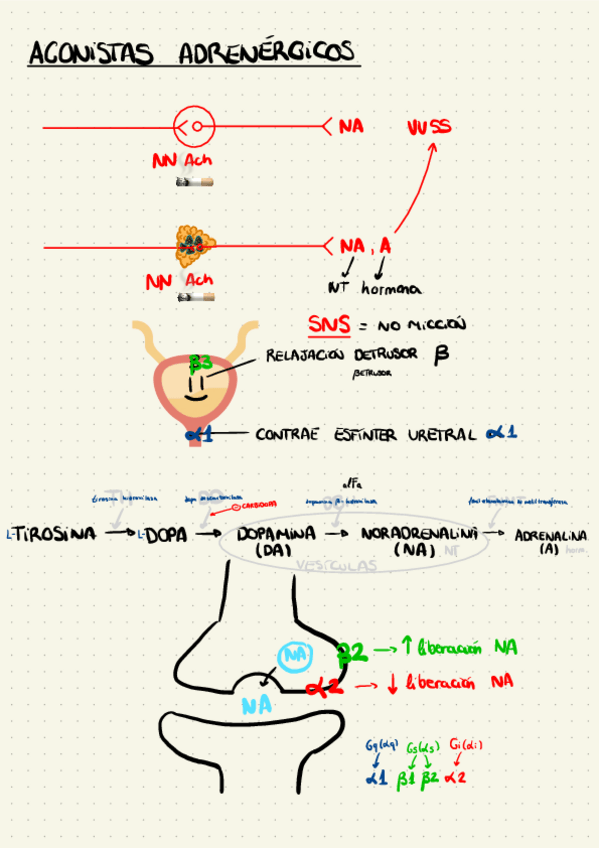 AGONISTAS ADRENÉRGICOS
NA VVSS
NN Ach
NA, A
NN Ach
NT hormona
SNS = NO MICCIÓN
β3
RELAJACIÓN DETRUSOR β
βETRUSOR
α1 CONTRAE ESFÍNTER URETRAL α1
alfa
tirosina hidroxilasa
dopa descarboxilasa
CARBIDOPA
dopamina β-hidroxilasa
L-TIROSINA → L-DOPA → DOPAMINA (DA) → NORADRENALINA (NA) NT → ADRENALINA (A) horm.
VESÍCULAS
NA
β2 → ↑ liberación NA
α2 → ↓ liberación NA
NA
Gq(αq) Gs(αs) Gi(αi)
α1 β1 β2 α2